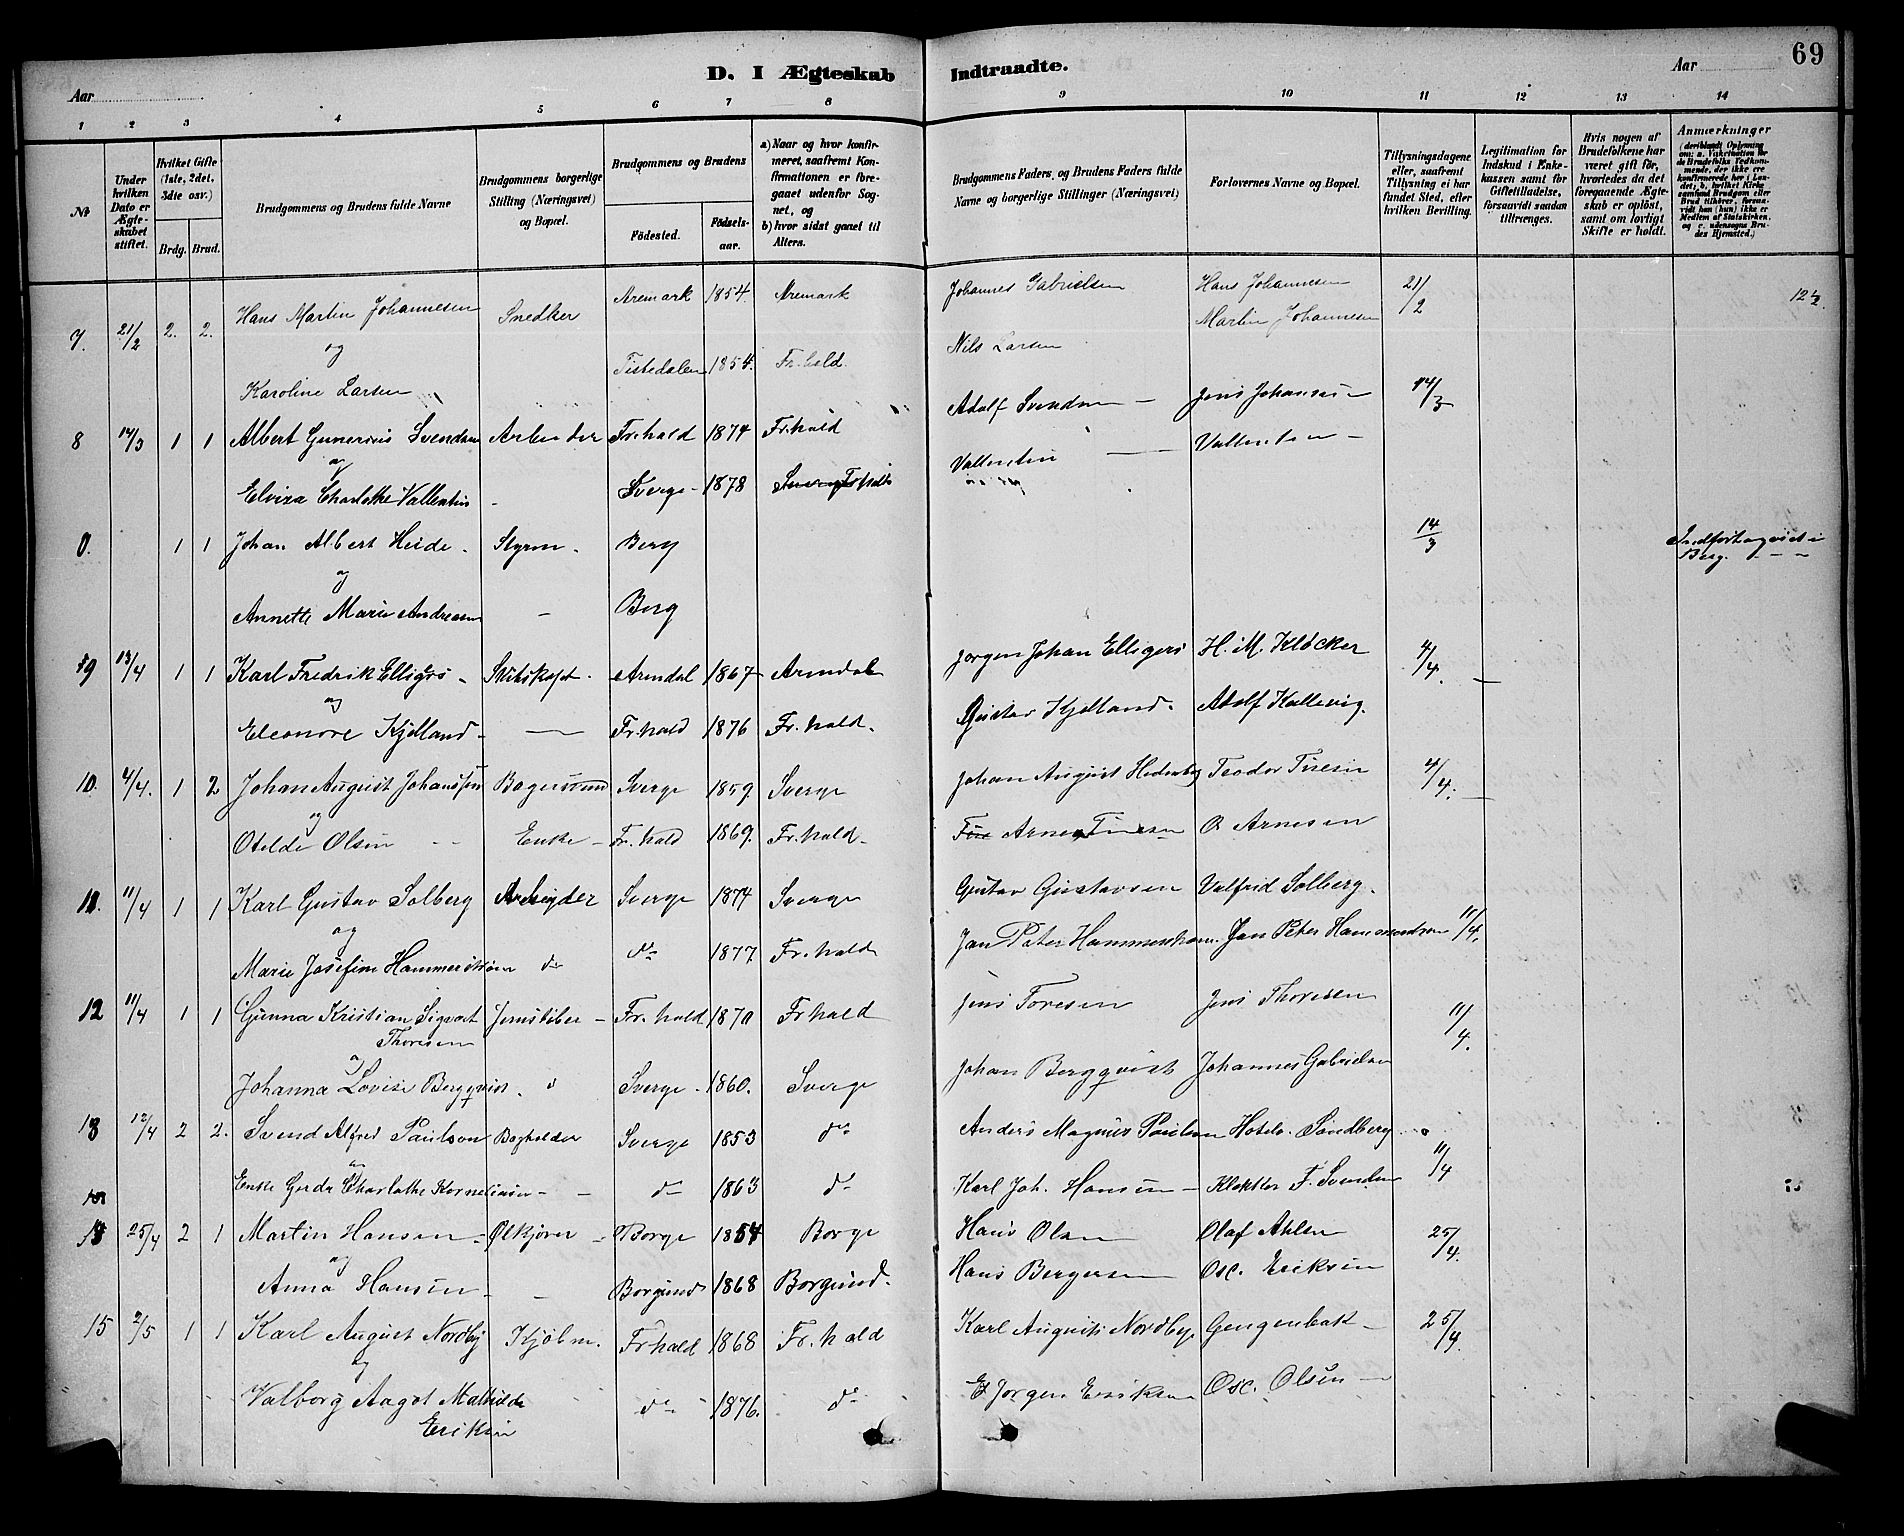 D. I Ægteskab Indtraadte.
69
Aar
Aar
1 2 3 4 5 6 7 8 9 10 11 12 13 14
№
Under hvilken Dato er Ægteskabet stiftet.
Hvilket Gifte (1ste, 2det, 3die osv.)
Brdg. Brud.
Brudgommens og Brudens fulde Navne
Brudgommens borgerlige Stilling (Næringsvei) og Bopæl.
Brudgommens og Brudens
Fødested. Fødselsaar.
a) Naar og hvor konfirmeret, saafremt Konfirmationen er foregaaet udenfor Sognet, og b) hvor sidst gaaet til Alters.
Brudgommens Faders, og Brudens Faders fulde Navne og borgerlige Stillinger (Næringsvei)
Forlovernes Navne og Bopæl.
Tillysningsdagene eller, saafremt Tillysning ei har fundet Sted, efter hvilken Bevilling.
Legitimation for Indskud i Enkekassen samt for Giftetilladelse, forsaavidt saadan tiltrænges.
Hvis nogen af Brudefolkene har været gift før, hvorledes da det foregaaende Ægteskab er opløst, samt om lovligt Skifte er holdt.
Anmærkninger
7. 21/2 2. 2. Hans Martin Johannesen Snedker Aremark 1854. Aremark Johannes Gabrielsen Hans Johannesen 21/2
og Martin Johannesen
Karoline Larsen Tistedalen 1854. Fr.hald. Nils Larsen
8 14/3 1 1 Albert Gunerius Svendsen Arbeider Fr.hald 1874 Fr.hald Adolf Svendsen — Jens Johansen 14/3
og
Elvira Charlotte Vallentin - Sverge - 1878 Fr.hald Vallentin — Vallentin -
0. 1 1 Johan Albert Heide. Styrm. Berg 14/3 Indført og viet i Berg.
og
Annette Marie Andresen — Berg
9 13/4 1 1 Karl Fredrik Elligers - Skibskapt. Arendal 1867 Arendal Jørgen Johan Elligers H. M. Kløcker 4/4.
og
Eleonore Kjelland - — Fr.hald 1876 Fr.hald. Gustav Kjelland. Adolf Kallevig.
10. 4/4. 1 2 Johan August Johanssen Sverge 1859. Sverge Johan August Teodor 4/4.
og
Otelde Olsen Enke - Fr.hald 1869. Fr.hald - Arne O Arnesen
11. 11/4 1 1 Karl Gustav Solberg Arbeider Sverge 1874 Sverge Gustav Gustavsen Valfrid Solberg.
og
Marie Josefine Hammerstrøm do do 1877 Fr.hald Jan Peter Jan Peter 11/4.
12 11/4 1 1 Gunna Kristian Sigvart Jernstøber - Fr.hald 1870 Frhald Jens Toresen Jens Thoresen 11/4.
Thoresen
og
Johanna Lovise Bergqvist. Sverge - 1860. Sverge Johan Bergqvist Johannes Gabrielsen
13 12/4 2 2. Svend Alfred Paulson Bogholder Sverge 1853 do Anders Magnus Paulsen Hotelv. Sandberg 11/4
og
Enke Gerda Charlotte Kornelius - do 1863 do Karl Joh. Hansen - Klokker F. Svendsen
14 25/4 2 1 Martin Hansen - Ølkjører - Borge 1854 Borge Hans Olsen Olaf Ahlsen 25/4.
og
Anna Hansen - Borgund 1868 Borgund. Hans Bergersen Osc. Eriksen
15 2/5 1 1 Karl August Nordby Kjøbm. Fr.hald 1868 Fr.hald Karl August Nordbye Gengenbak - 25/4.
og
Valborg Aagot Mathilde do 1876. do Jørgen Eriksen Osc. Olsen -
Eriksen